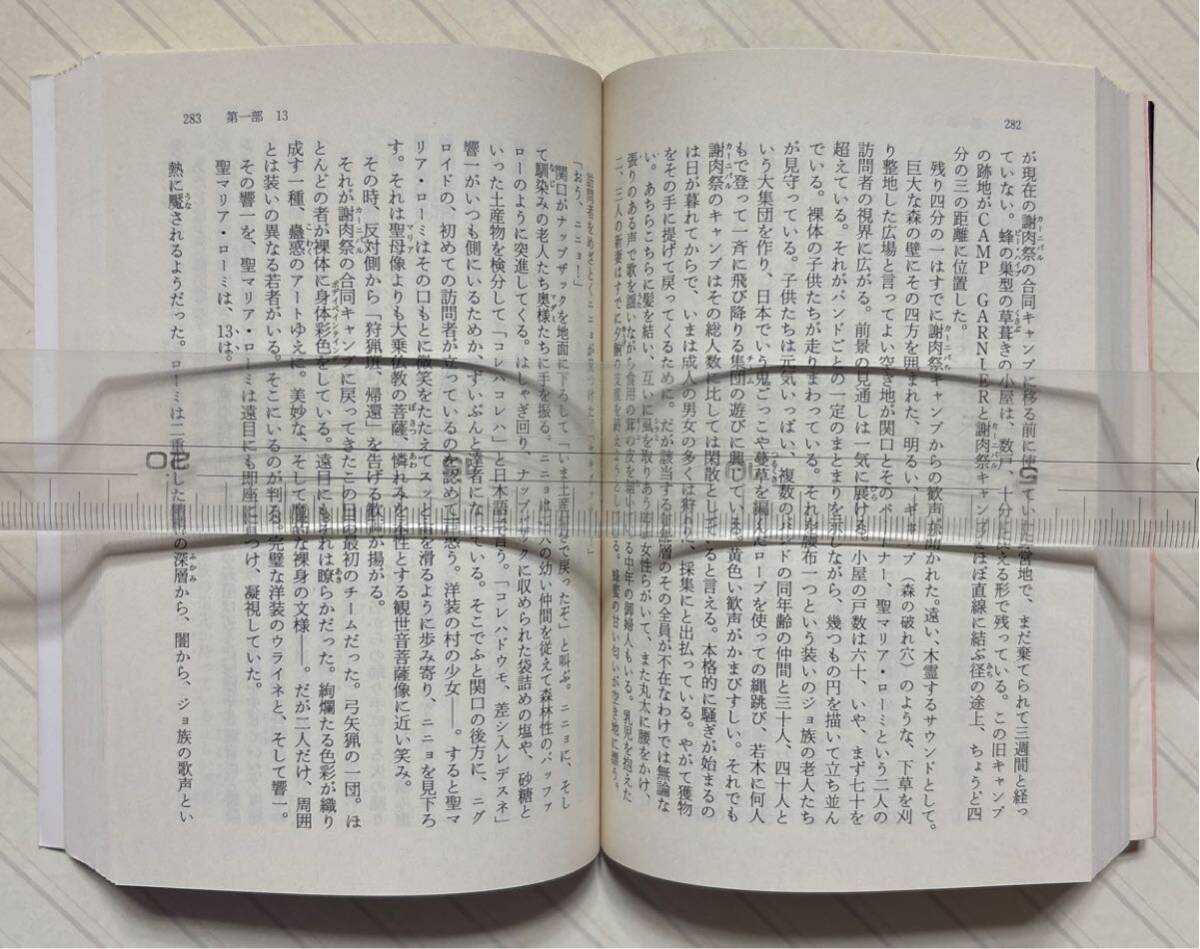 282
が現在の謝肉祭の合同キャンプに移る前に使っていた宿営地で、まだ棄てられて三週間と経っ
ていない。蜂の巣型の草葺きの小屋は、数す、十分に使える形で残っている。この旧キャンプ
の跡地がCAMP GARNIERと謝肉祭キャンプとほぼ直線に結ぶ径の途上、ちょうど四
分の三の距離に位置した。
残り四分の一はすでに謝肉祭キャンプからの歓声が聞かれた。遠い、木霊するサウンドとして。
巨大な森の壁にその四方を囲まれた、明るい、ギャップ（森の破れ穴）のような、下草を刈
り整地した広場と言ってよい空き地が関口とそのパートナー、聖マリア・ローミという二人の
訪問者の視界に広がる。前景の見通しは一気に展ける。小屋の戸数は六十、いや、まず七十を
超えている。それがバンドごとの一定のまとまりを示しながら、幾つもの円を描いて立ち並ん
でいる。裸体の子供たちが走りまわっている。それを腰布一つという装いのジョ族の老人たち
が見守っている。子供たちは元気いっぱい、複数のバンドの同年齢の仲間と三十人、四十人と
いう大集団を作り、日本でいう鬼ごっこや蔓草を編んだロープを使っての縄跳び、若木に何人
もで登って一斉に飛び降りる集団の遊びに興じている。黄色い歓声がかまびすしい。それでも
謝肉祭のキャンプはその総人数に比しては閑散としていると言える。本格的に騒ぎが始まるの
は日が暮れてからで、いまは成人の男女の多くは狩りに、採集にと出払っている。やがて獲物
をその手に提げて戻ってくるために。だが該当する年齢層のその全員が不在なわけでは無論な
い。あちらこちらに髪を結い、互いに虱を取りあう女性らがいて、また丸太に腰をかけ、
張りのある声で歌を謳いながら食用の茸の皮を る中年の御婦人もいる。乳児を抱えた
二、三人の新妻はすでに夕餉の支度を終えようとしている。蜂蜜の甘い匂いが空き地に漂う。
283 第一部 13
訪問者をめざとくニニョが見つけた。
「おう、ニニョ！」
関口がナップザックを地面に下ろして「いま土産 で戻ったぞ」と叫ぶ。ニニョに、そし
て馴染みの老人たち奥様たちに手を振る。ニニョは 人の幼い仲間を従えて森林性のバッファ
ローのように突進してくる。はしゃぎ回り、ナップザックに収められた袋詰めの塩や、砂糖と
いった土産物を検分して「コレハコレハ」と日本語で言う。「コレハドウモ、差シ入レデスネ」
響一がいつも側にいるためか、ずいぶんと達者になっている。そこでふと関口の後方に、ニグ
ロイドの、初めての訪問者が立っているのを認めて戸惑う。洋装の村の少女――。すると聖マ
リア・ローミはその口もとに微笑をたたえてスッと土を滑るように歩み寄り、ニニョを見下ろ
す。それは聖母像よりも大乗仏教の菩薩、憐れみを本性とする観世音菩薩像に近い笑み。
その時、反対側から「狩猟班、帰還」を告げる歓声が揚がる。
それが謝肉祭の合同キャンプに戻ってきたこの日の最初のチームだった。弓矢猟の一団。ほ
とんどの者が裸体に身体彩色をしている。遠目にもそれは瞭らかだった。絢爛たる色彩が織り
成す一種、蠱惑のアートゆえに。美妙な、そして魔 な裸身の文様――。だが二人だけ、周囲
とは装いの異なる若者がいる。そこにいるのが判る。完璧な洋装のウライネと、そして響一。
その響一を、聖マリア・ローミは遠目にも即座に見つけ、凝視していた。
聖マリア・ローミは、13は。
熱に魘されるようだった。ローミは二重 した の深層から、闇から、ジョ族の歌声とい